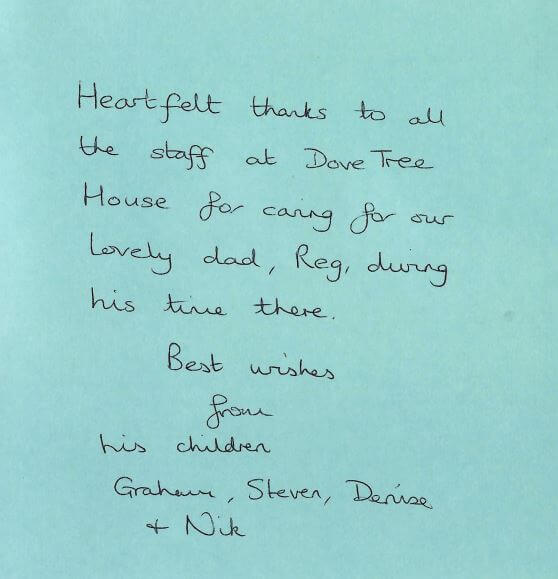 Heartfelt thanks to all
the staff at Dove Tree
House for caring for our
lovely dad, Reg, during
his time there.
Best wishes
from
his children
Graham, Steven, Denise
+ Nik